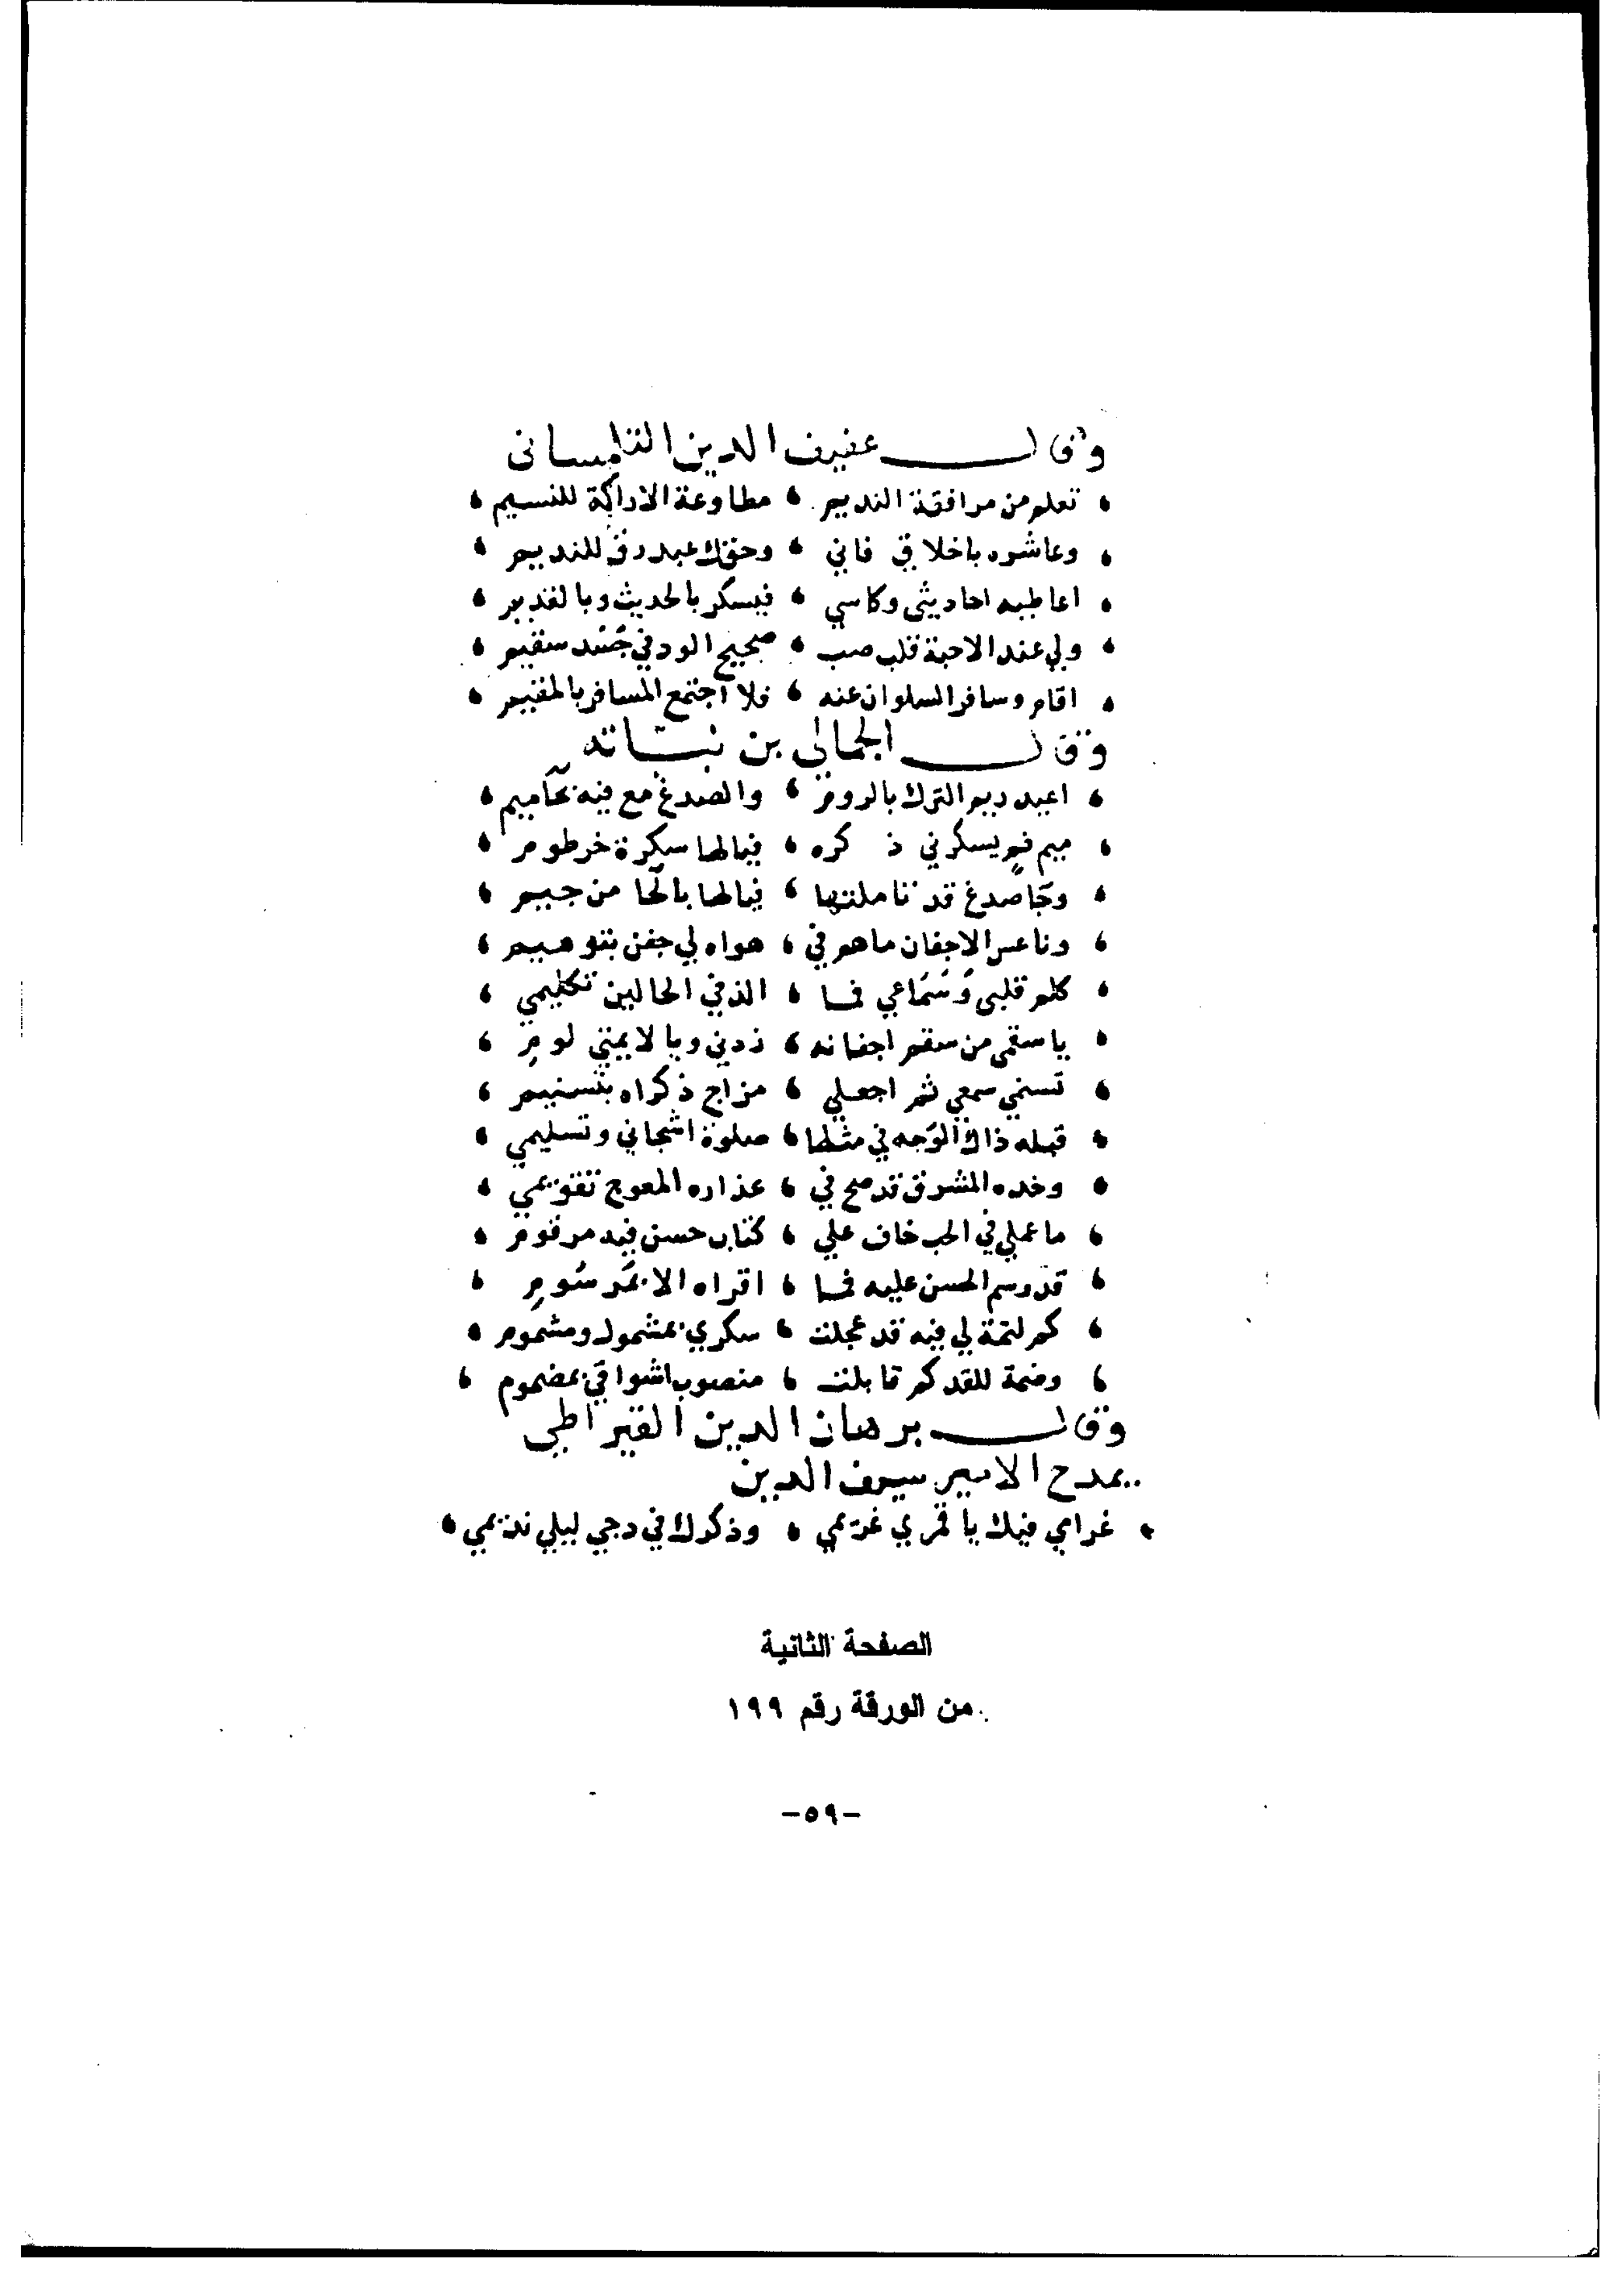 وقال عفيف الدين التلمسانى
تعلم من مرافقة النديم ، مطاوعة الاراكة للنسيم
وعاشره باخلاق فاني ، وحقك عبد رق للنديم
اعاطيه احاديثي وكاسي ، فيسكر بالحديث وبالقديم
ولي عند الاحبة قلب صب ، صحيح الود في جسد سقيم
اقام وسافر السلوان عنه ، فلا اجتمع المسافر بالمقيم
وقال الجمالى بن نباته
اعيد ريم الترك بالروم ، والصدغ مع فيه بحاميم
ميم فم يسكرني ذكره ، فيالها سكرة خرطوم
وحا صدغ قد تاملتها ، فيالها بالحا من جيم
وناعس الاجفان ما هم في ، هواه لي جفن بتوهيم
كلم قلبي وسماعي فما ، الذ في الحالين تكليمي
يا سقمي من سقم اجفانه ، زدني ويا لايمتي لوم
تسنمي سمعي ثم اجعلي ، مزاج ذكراه بتسنيم
قبله ذاك الوجه في مثلها ، صلوة اشجاني وتسليمي
وخده المشرق قد صح في ، عذاره المعوج تقويمي
ما عملي في الحب خاف علي ، كتاب حسن فيه مرقوم
قد رسم الحسن عليه فما ، اقراه الا بمرسوم
كم لثمة لي فيه قد عجلت ، سكري بمشمول ومشموم
وضمة للقد كم قابلت ، منصوب اشواقي بمضموم
وقال برهان الدين القيراطي
يمدح الامير سيف الدين
غرامي فيك يا قمري غريمي ، وذكرك في دجي ليلي نديمي
الصفحة الثانية
من الورقة رقم ١٩٩
-٥٩-